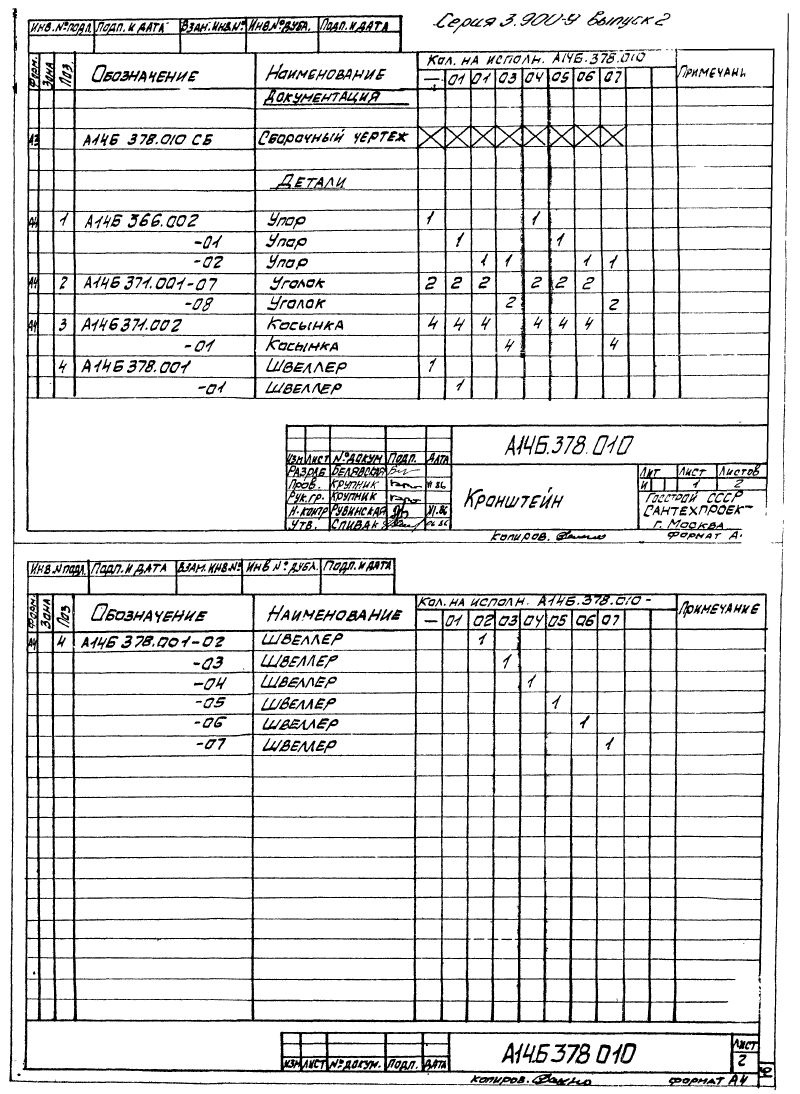 Серия 3.900-9 Выпуск 2
ИНВ.№ПОДЛ. ПОДП. И ДАТА ВЗАМ.ИНВ.№ ИНВ.№ДУБЛ. ПОДП. И ДАТА
Форм. Зона Поз. Обозначение Наименование Кол. на исполн. А14Б.378.010 Примечани
— 01 01 03 04 05 06 07
Документация
А3 А14Б 378.010 СБ Сборочный чертеж
Детали
А4 1 А14Б 366.002 Упор 1 1
-01 Упор 1 1
-02 Упор 1 1 1 1
А4 2 А14Б 371.001-07 Уголок 2 2 2 2 2 2
-08 Уголок 2 2
А4 3 А14Б 371.002 Косынка 4 4 4 4 4 4
-01 Косынка 4 4
4 А14Б 378.001 Швеллер 1
-01 Швеллер 1
А14Б.378.010
Изм Лист №докум Подп. Дата
Разраб Белявская
Пров. Крупник VI 86
Рук.гр. Крупник
Н.контр Рубинская VI.86
Утв. Спивак
Кронштейн
Лит Лист Листов
И 1 2
Госстрой СССР
Сантехпроек-
г. Москва
Копиров. Формат А.
ИНВ.№ПОДЛ. ПОДП. И ДАТА ВЗАМ. ИНВ.№ ИНВ.№ ДУБЛ. ПОДП. И ДАТА
Форм. Зона Поз Обозначение Наименование Кол. на исполн. А14Б.378.010 - Примечание
— 01 02 03 04 05 06 07
А4 4 А14Б 378.001-02 Швеллер 1
-03 Швеллер 1
-04 Швеллер 1
-05 Швеллер 1
-06 Швеллер 1
-07 Швеллер 1
А14.Б 378 010
Лист
2
Изм Лист №докум. Подп. Дата
Копиров. Формат А4